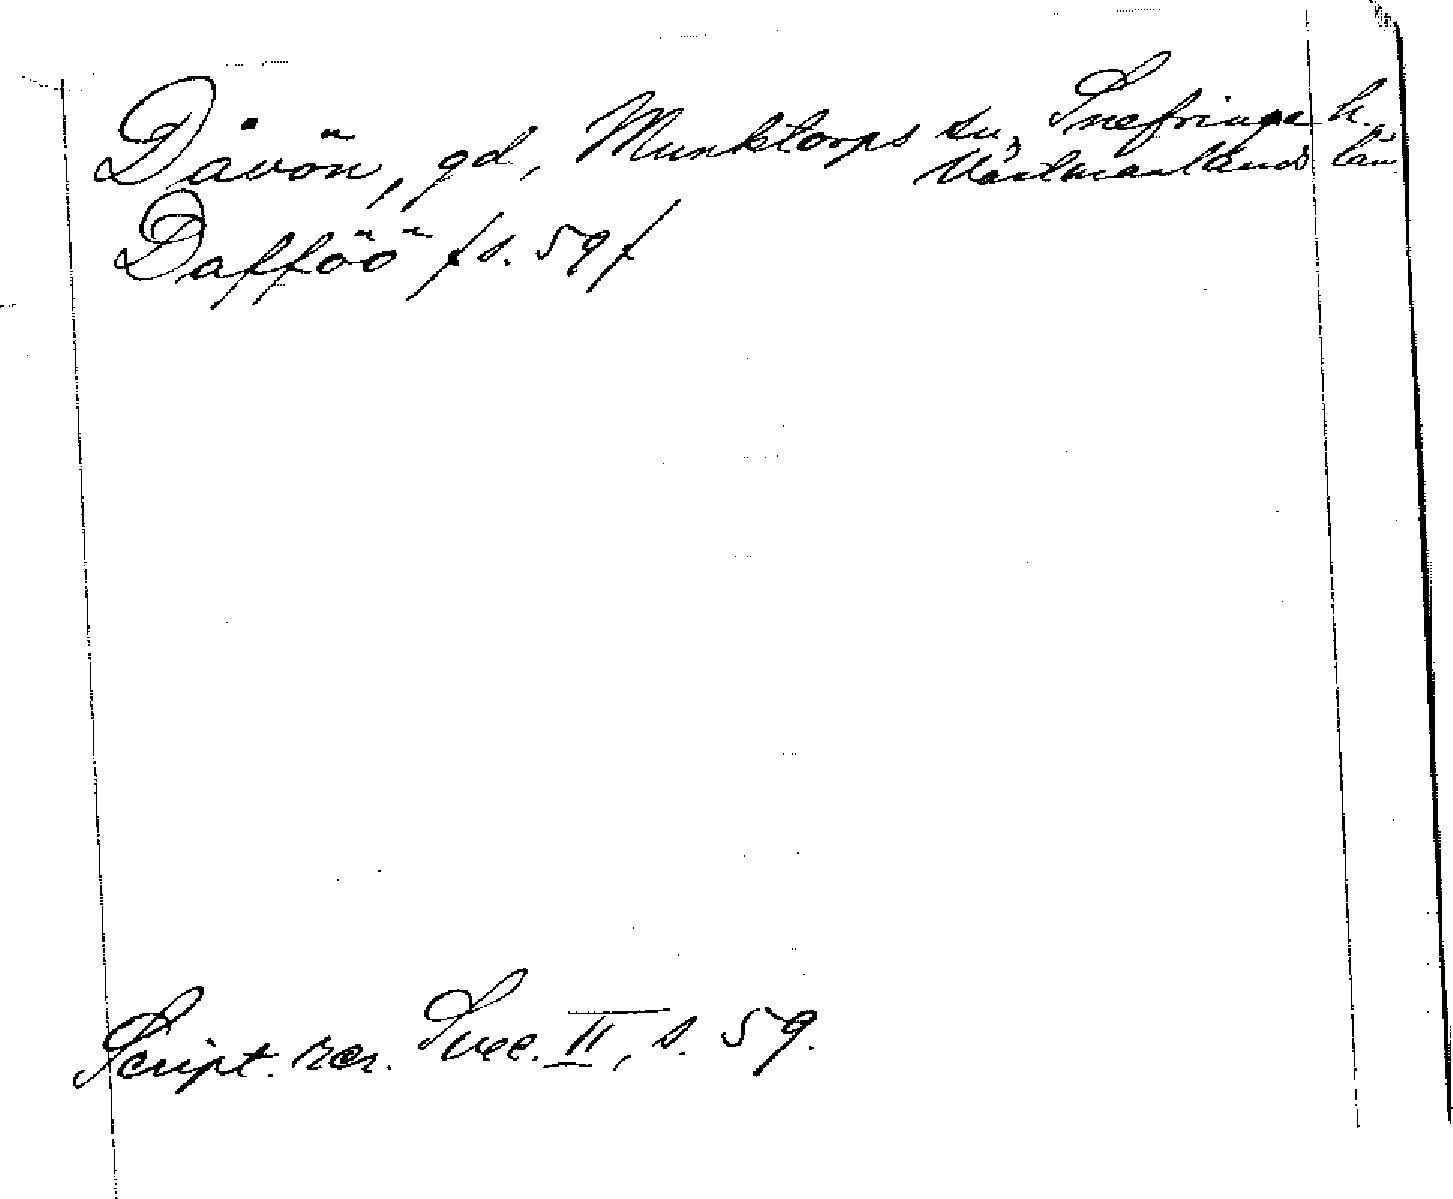 Dåvön, gd, Munktorps sn, Snefringe h.
Västmanlands län
Dafföö /s. 59/
Script. rer. Svec. II, s. 59.